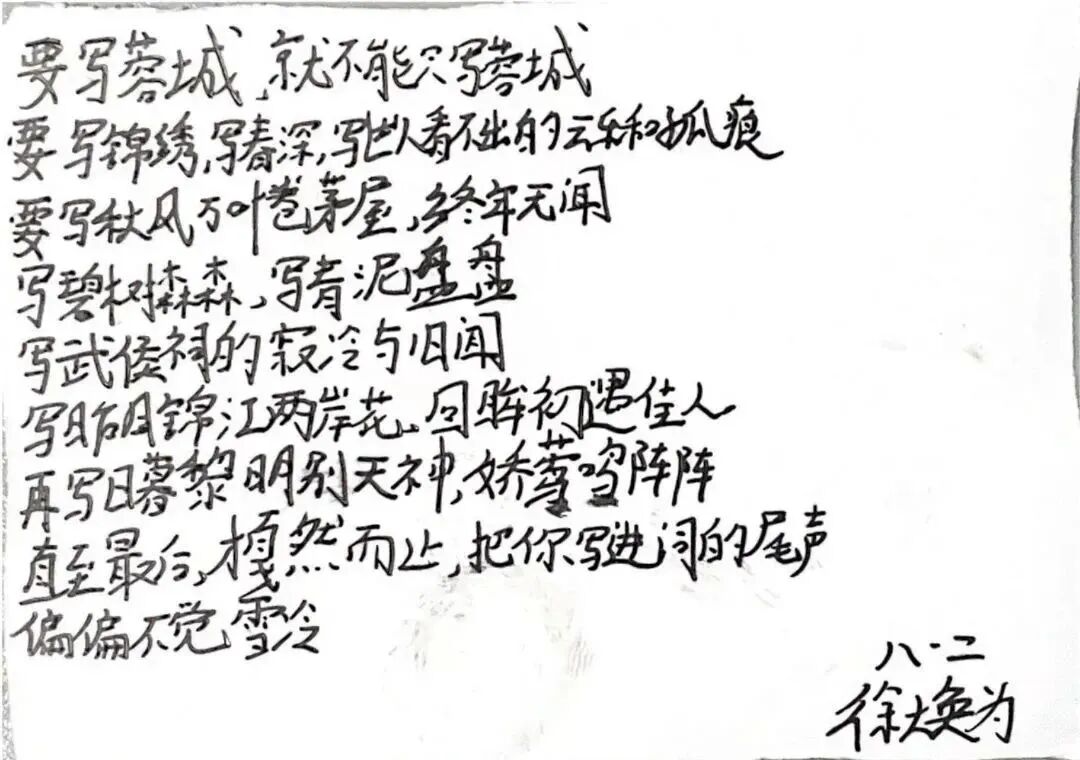 要写蓉城,就不能只写蓉城
要写锦绣,写春深,写世人看不出的云和孤痕
要写秋风万叶卷茅屋,终年无闻
写碧树森森,写青泥盘盘
写武侯祠的寂冷与旧闻
写明锦江两岸花、回眸初遇佳人
再写日暮黎明别天神,娇莺鸣阵阵
直至最后,戛然而止,把你写进词的尾声
偏偏不觉雪冷
八·二
徐焕为